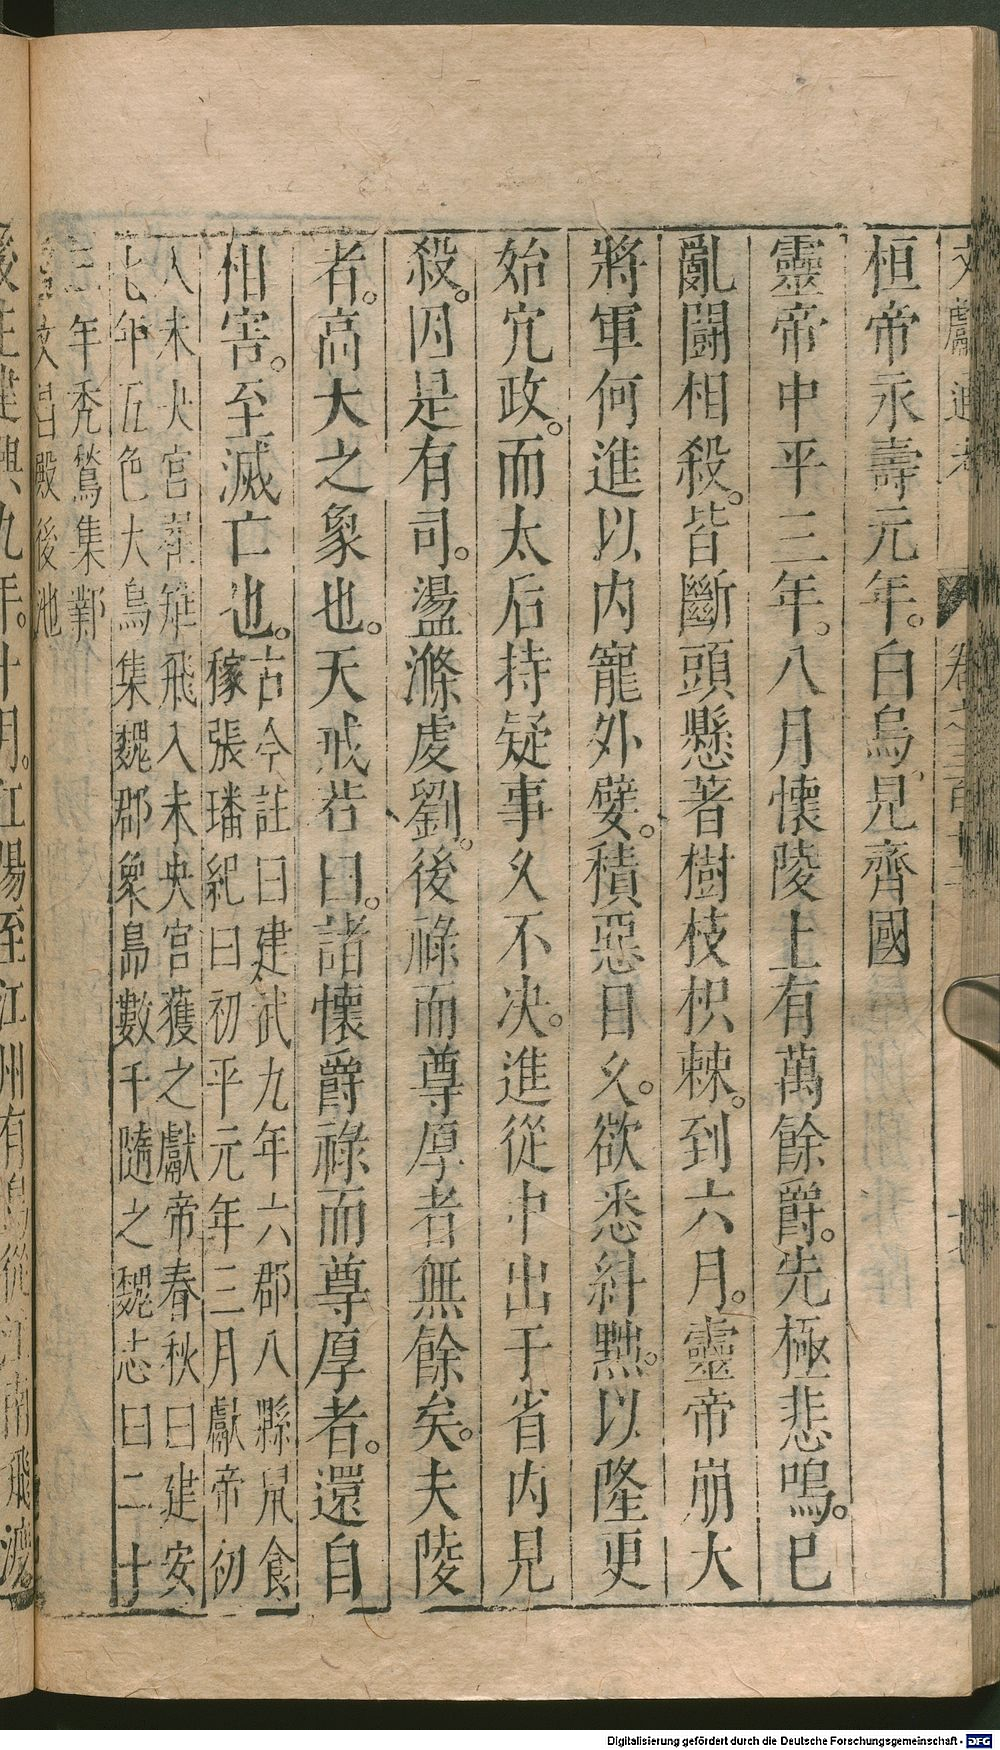 文獻通考 卷之三百十二
桓帝永壽元年。白烏見齊國
靈帝中平三年。八月懷陵上有萬餘爵。先極悲鳴。已
亂鬪相殺。皆斷頭懸著樹枝枳棘。到六月。靈帝崩大
將軍何進以内寵外嬖。積惡日久。欲悉糾黜。以隆更
始冗政。而太后持疑事久不决。進從中出于省内見
殺。因是有司。盪滌虔劉。後祿而尊厚者無餘矣。夫陵
者。高大之象也。天戒若曰。諸懷爵祿而尊厚者。還自
相害。至滅亡也。
古今註曰建武九年六郡八縣鼠食
稼張璠紀曰初平元年三月獻帝初
入未央宮雉飛入未央宮獲之獻帝春秋曰建安
七年五色大鳥集魏郡衆鳥數千隨之魏志曰二十
三年秃鶖集鄴
文昌殿後池
後主建興九年。十月。江陽至江州有鳥從江南飛渡
Digitalisierung gefördert durch die Deutsche Forschungsgemeinschaft - DFG